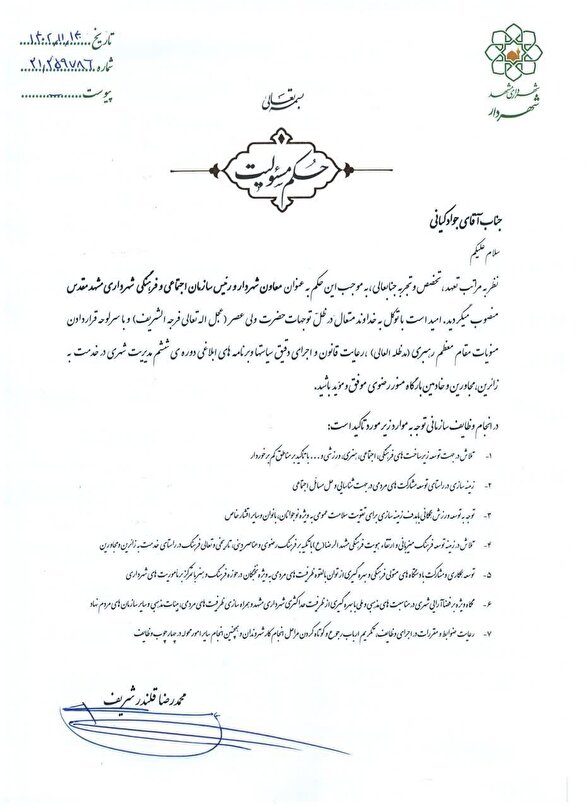 تاریخ ۱۴۰۲،۱۱،۱۴
شماره ۲۱،۲۵۹۷۸۶
پیوست
شهرداری مشهد
شهردار
بسمه تعالی
حکم مسئولیت
جناب آقای جواد کیانی
سلام علیکم
نظر به مراتب تعهد، تخصص و تجربه جنابعالی، به موجب این حکم به عنوان معاون شهردار و رئیس سازمان اجتماعی و فرهنگی شهرداری مشهد مقدس
منصوب میگردید. امید است با توکل به خداوند متعال در ظلّ توجهات حضرت ولی عصر (عجل اله تعالی فرجه الشریف) و با سرلوحه قراردادن
منویات مقام معظم رهبری (مدظله العالی)، رعایت قانون و اجرای دقیق سیاستها و برنامه های ابلاغی دوره ی ششم مدیریت شهری در خدمت به
زائرین، مجاورین و خادمین بارگاه منور رضوی موفق و مؤید باشید.
در انجام وظایف سازمانی توجه به موارد زیر مورد تاکید است:
۱- تلاش در جهت توسعه زیرساخت های فرهنگی، اجتماعی، هنری، ورزشی و... با تاکید بر مناطق کم برخوردار
۲- زمینه سازی در راستای توسعه مشارکت های مردمی در جهت شناسایی و حل مسائل اجتماعی
۳- توجه به توسعه ورزش همگانی با هدف زمینه سازی برای تقویت سلامت عمومی به ویژه نوجوانان، بانوان و سایر اقشار خاص
۴- تلاش در زمینه توسعه فرهنگ میزبانی و ارتقاء هویت فرهنگی مشهد الرضا (ع) با تکیه بر فرهنگ رضوی و عناصر دینی، تاریخی و تعالی فرهنگ در راستای خدمت به زائرین و مجاورین
۵- توسعه همکاری و مشارکت با دستگاه های متولی فرهنگی و بهره گیری از توان بالقوه ظرفیت های مردمی به ویژه نخبگان در حوزه فرهنگ و هنر با تمرکز بر ماموریت های شهرداری
۶- نگاه ویژه بر فضا آرایی شهری در مناسبت های مذهبی و ملی با بهره گیری از ظرفیت حداکثری شهرداری مشهد و همراه سازی ظرفیت های مردمی، هیئات مذهبی و سایر سازمان های مردم نهاد
۷- رعایت ضوابط و مقررات در اجرای وظایف، تکریم ارباب رجوع و کوتاه کردن مراحل انجام کار شهروندان و همچنین انجام سایر امور محوله در چهارچوب وظایف
محمدرضا قلندر شریف